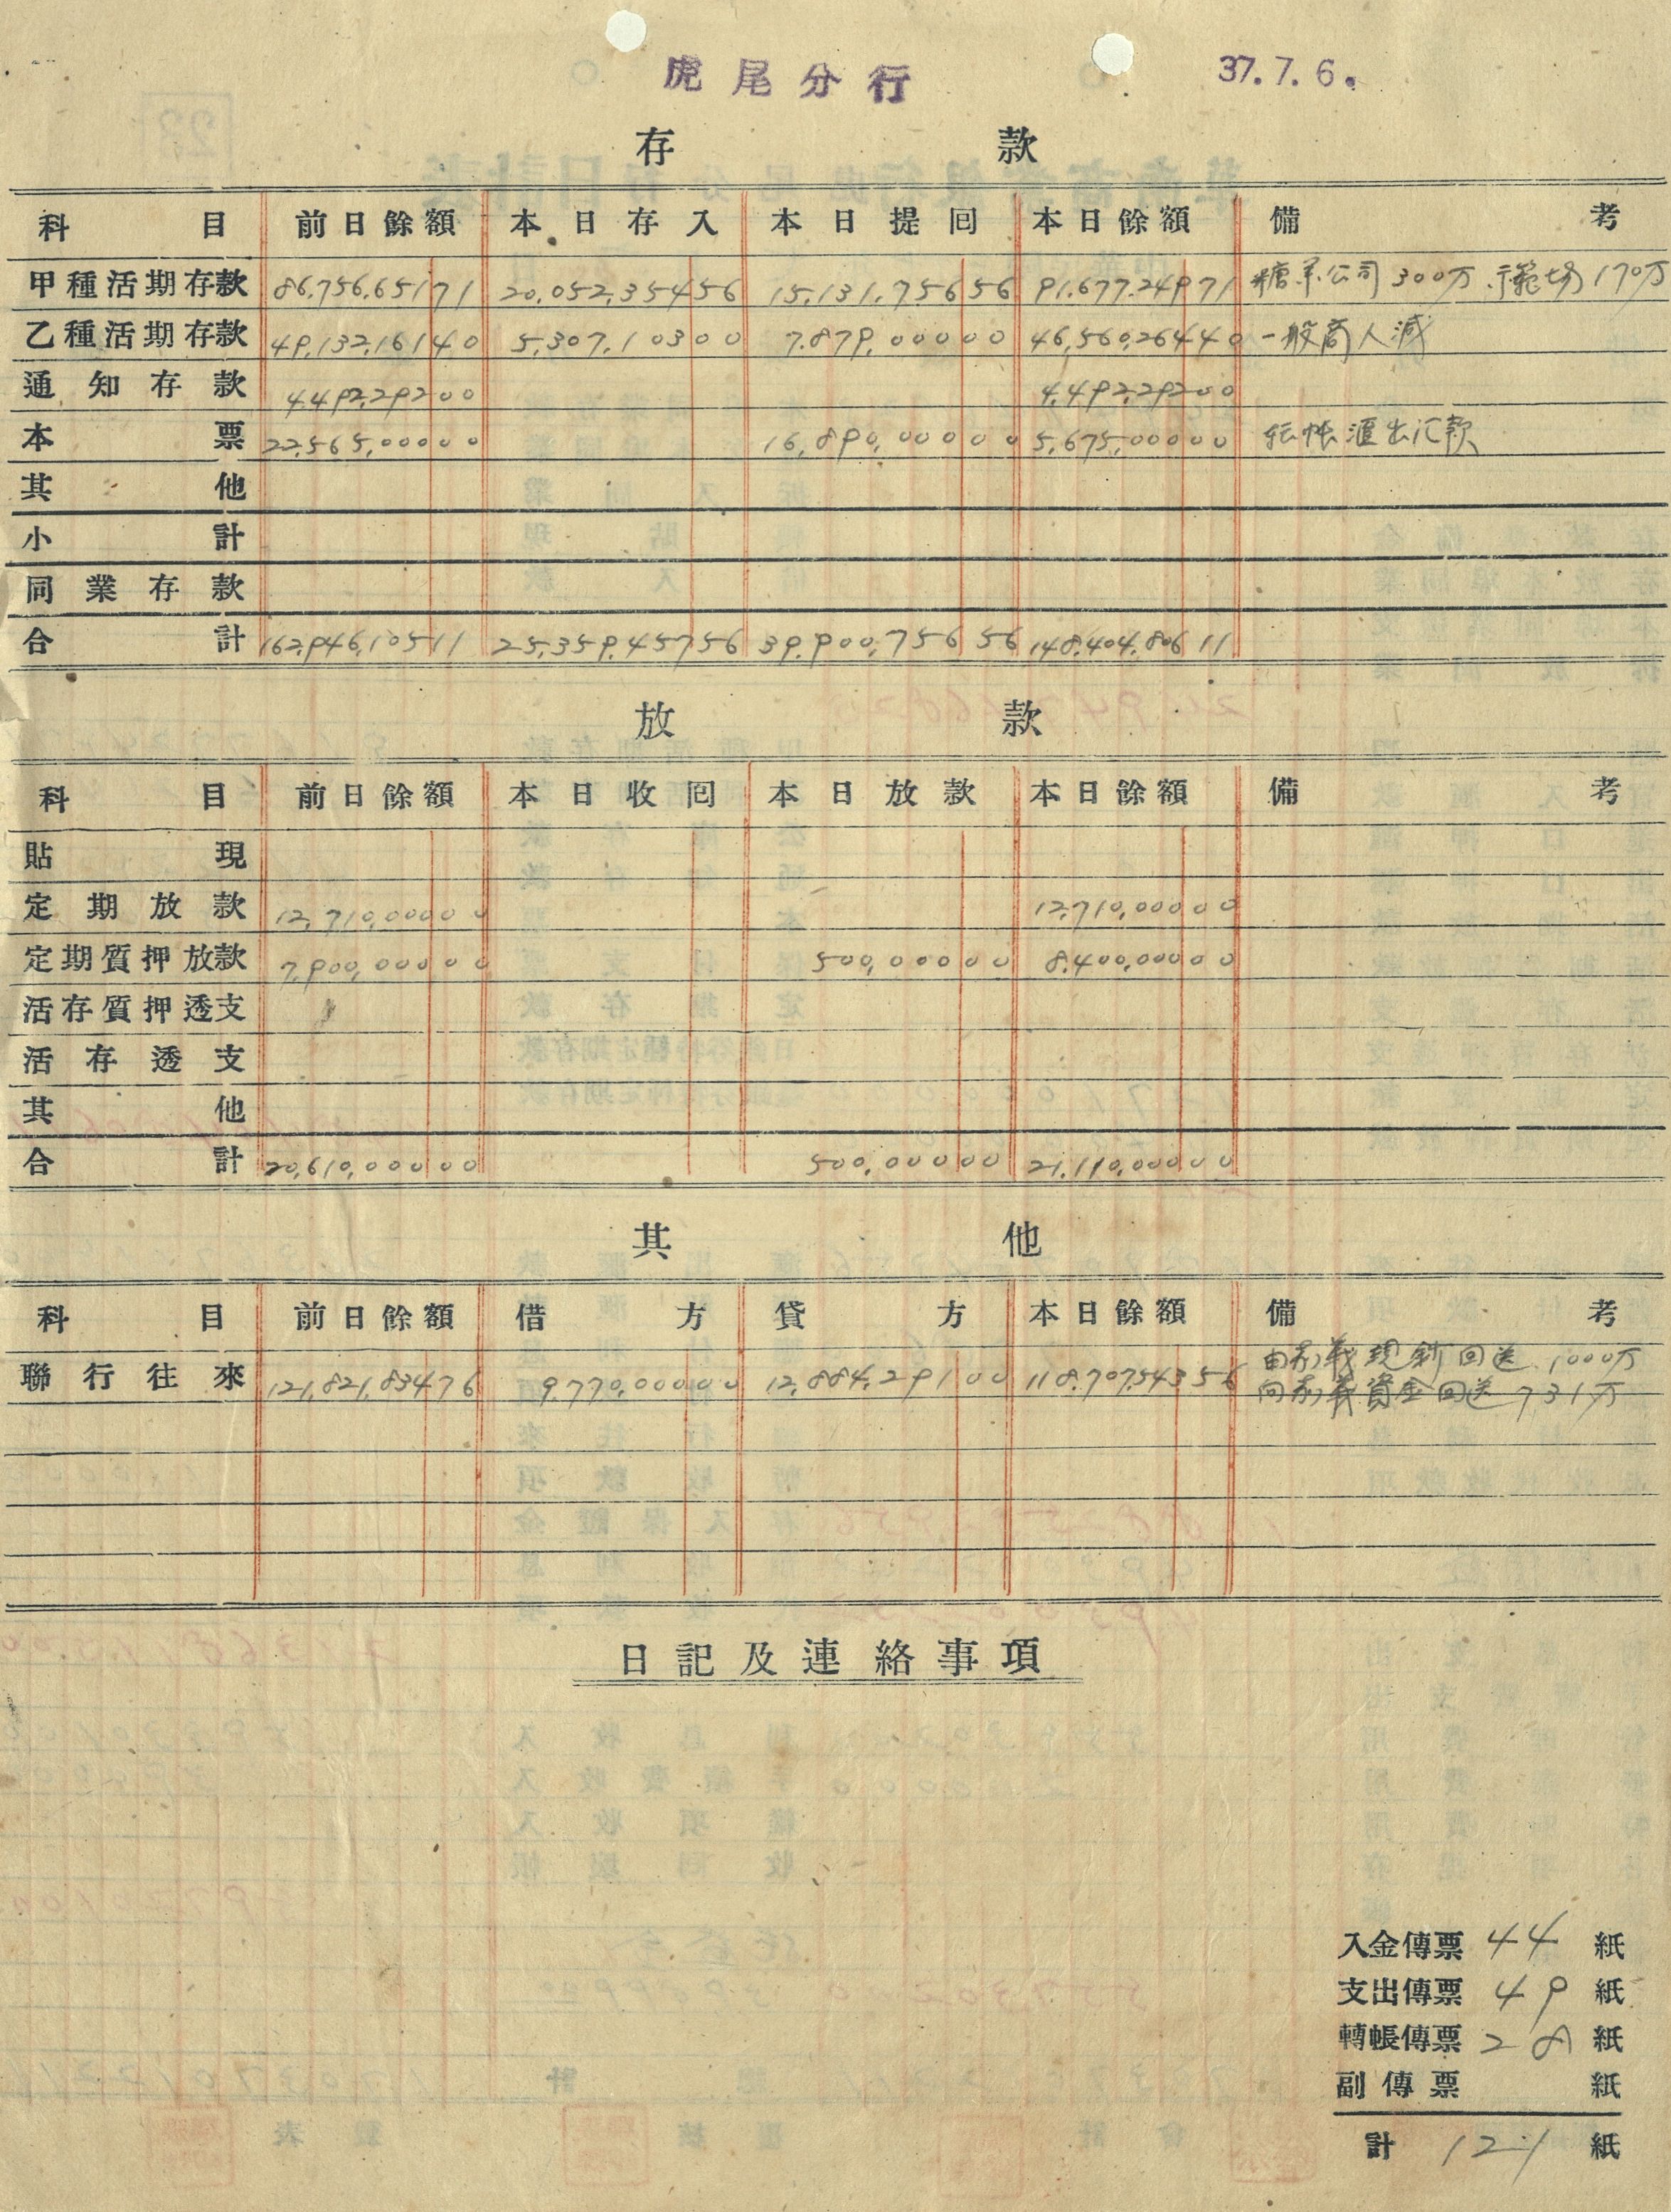 虎尾分行 37.7.6.
存款
科目 前日餘額 本日存入 本日提囘 本日餘額 備考
甲種活期存款 86,756,651 71 20,052,354 56 15,131,756 56 91,677,249 71 糖業公司 300万 示範場 170万
乙種活期存款 49,132,161 40 5,307,103 00 7,879,000 00 46,560,264 40 一般商人減
通知存款 4,492,292 00 4,492,292 00
本票 22,565,000 00 16,890,000 00 5,675,000 00 転帳匯出汇款
其他
小計
同業存款
合計 162,946,105 11 25,359,457 56 39,900,756 56 148,404,806 11
放款
科目 前日餘額 本日收囘 本日放款 本日餘額 備考
貼現
定期放款 12,710,000 00 12,710,000 00
定期質押放款 7,900,000 00 500,000 00 8,400,000 00
活存質押透支
活存透支
其他
合計 20,610,000 00 500,000 00 21,110,000 00
其他
科目 前日餘額 借方 貸方 本日餘額 備考
聯行往來 121,821,834 76 9,770,000 00 12,884,291 00 118,707,543 56 由嘉義現鈔回送 1000万
向嘉義資金回送 731万
日記及連絡事項
入金傳票 44 紙
支出傳票 49 紙
轉帳傳票 28 紙
副傳票 紙
計 121 紙